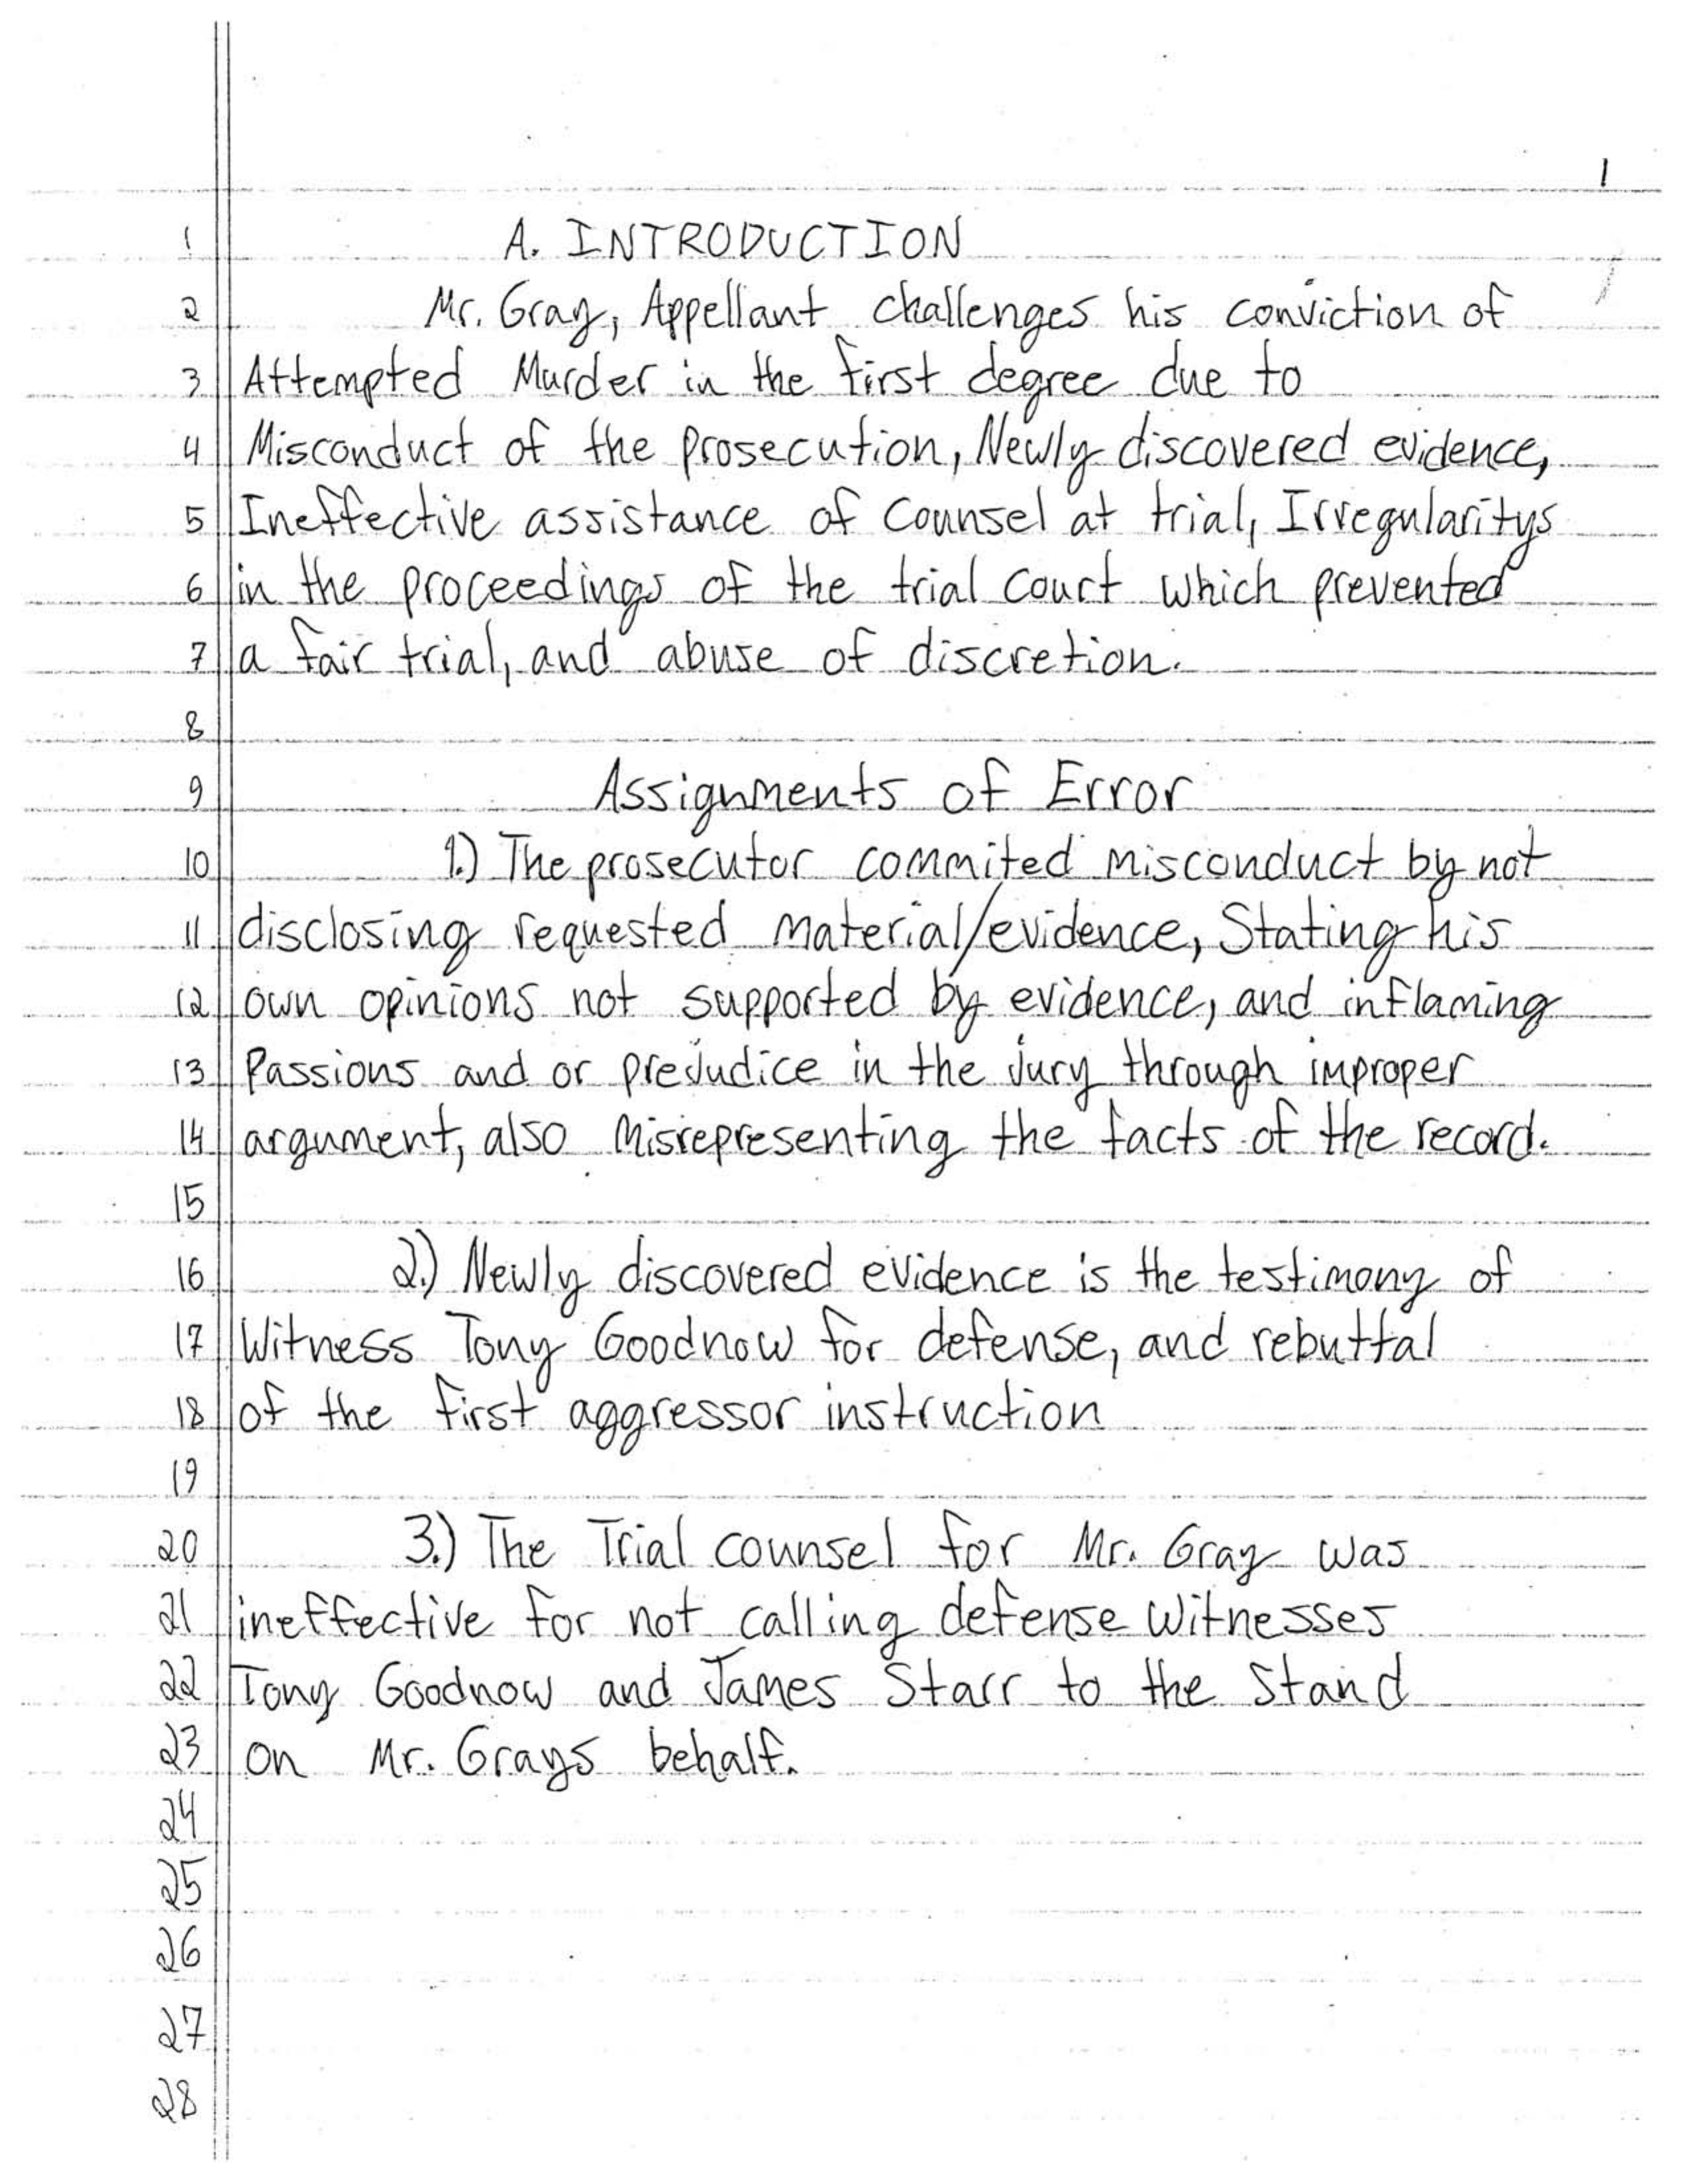 1
1 A. INTRODUCTION
2 Mr. Gray, Appellant challenges his conviction of
3 Attempted Murder in the first degree due to
4 Misconduct of the prosecution, Newly discovered evidence,
5 Ineffective assistance of Counsel at trial, Irregularitys
6 in the proceedings of the trial court which prevented
7 a fair trial, and abuse of discretion.
8
9 Assignments of Error
10 1.) The prosecutor commited misconduct by not
11 disclosing requested material/evidence, Stating his
12 own opinions not supported by evidence, and inflaming
13 Passions and or prejudice in the jury through improper
14 argument, also misrepresenting the facts of the record.
15
16 2.) Newly discovered evidence is the testimony of
17 Witness Tony Goodnow for defense, and rebuttal
18 of the first aggressor instruction
19
20 3.) The Trial counsel for Mr. Gray was
21 ineffective for not calling defense witnesses
22 Tony Goodnow and James Starr to the Stand
23 on Mr. Grays behalf.
24
25
26
27
28